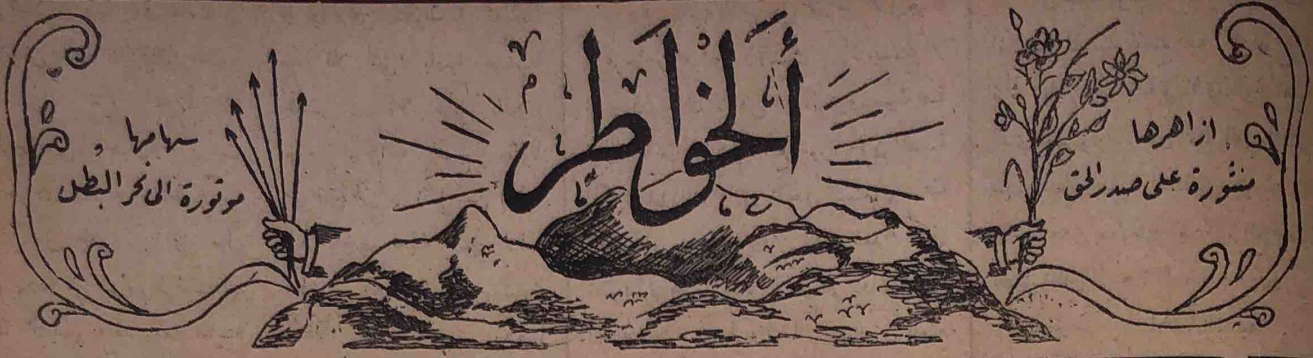 أَلخَواَطِر
ازاهرها
منثورة على صدر الحق
سهامها
موتورة الى نحر البُطل